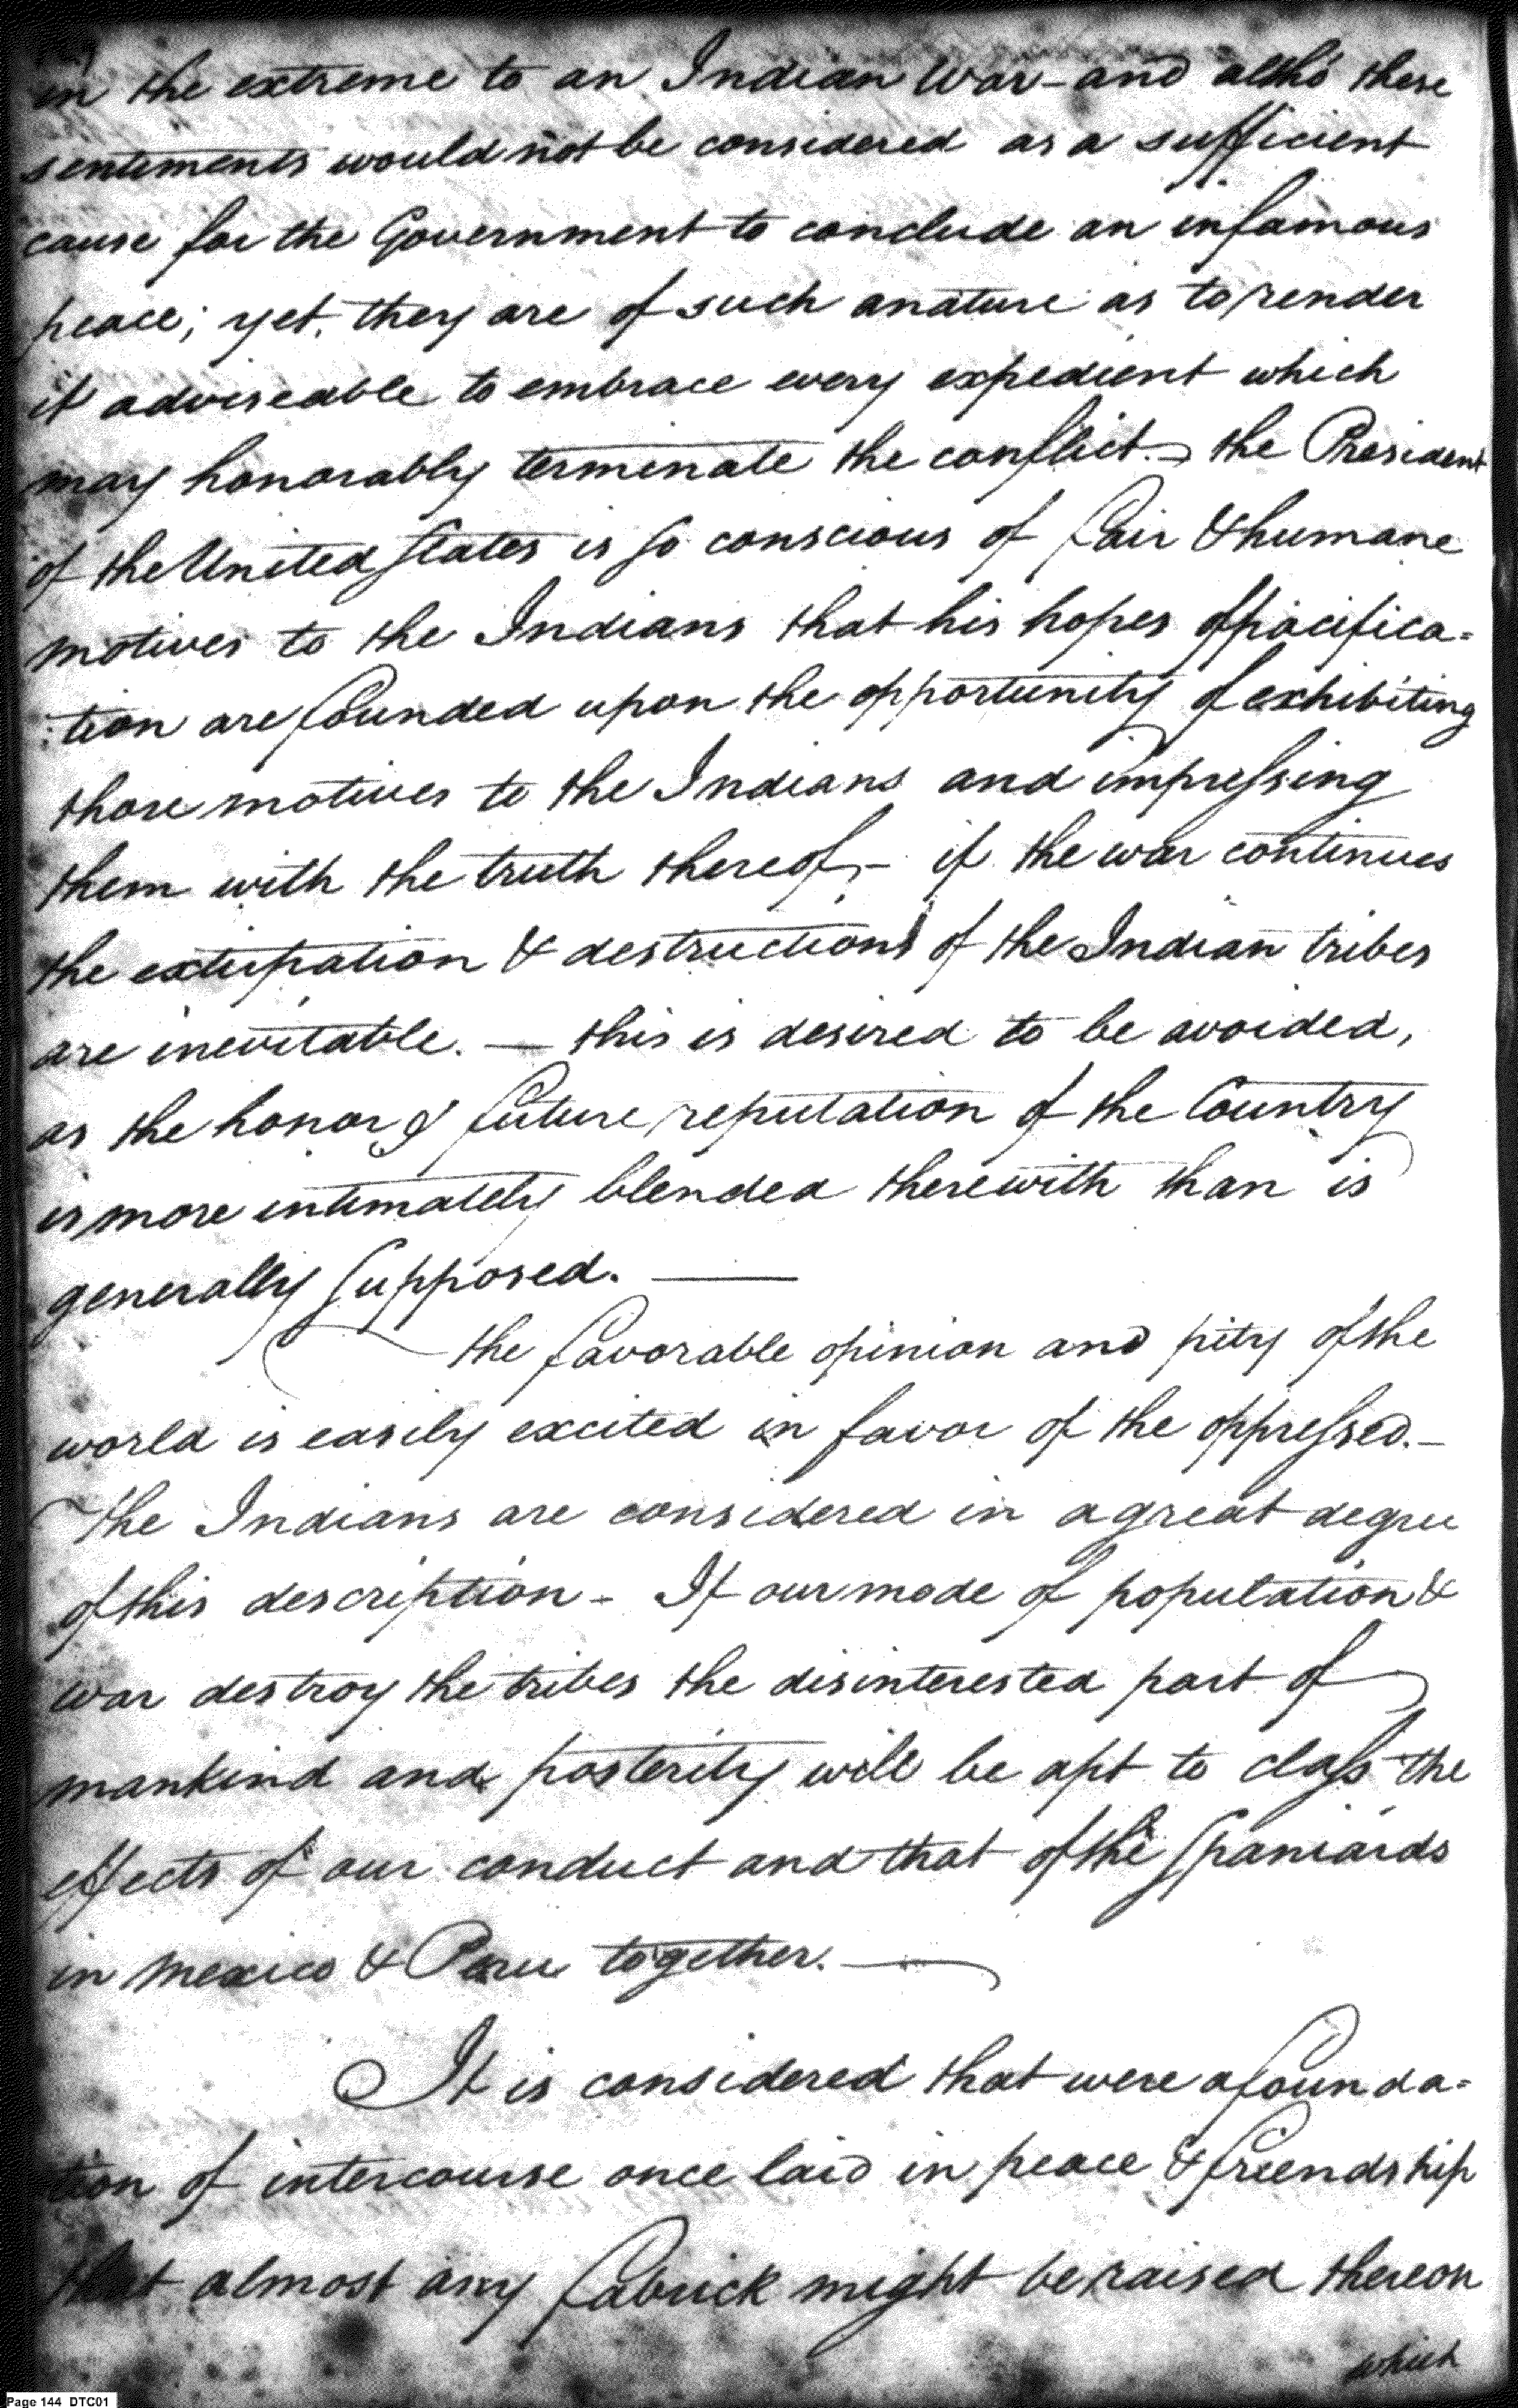 in the extreme to an Indian War - and altho' these
sentiments would not be considered as a sufficient
cause for the Government to conclude an infamous
peace; yet, they are of such a nature as to render
it adviseable to embrace every expedient which
may honorably terminate the conflict. - the President
of the United States is so conscious of fair & humane
motives to the Indians that his hopes of pacifica=
:tion are founded upon the opportunity of exhibiting
those motives to the Indians and impressing
them with the truth thereof, - if the war continues
the extirpation & destructions of the Indian tribes
are inevitable. — this is desired to be avoided,
as the honor & future reputation of the Country
is more intimately blended therewith than is
generally supposed. —
the favorable opinion and pity of the
world is easily excited in favor of the oppressed. -
The Indians are considered in a great degree
of this description - If our mode of population &
war destroy the tribes the disinterested part of
mankind and posterity will be apt to class the
effects of our conduct and that of the Spaniards
in Mexico & Peru together. —
It is considered that were a founda=
tion of intercourse once laid in peace & friendship
that almost any fabrick might be raised thereon
which
Page 144 DTC01